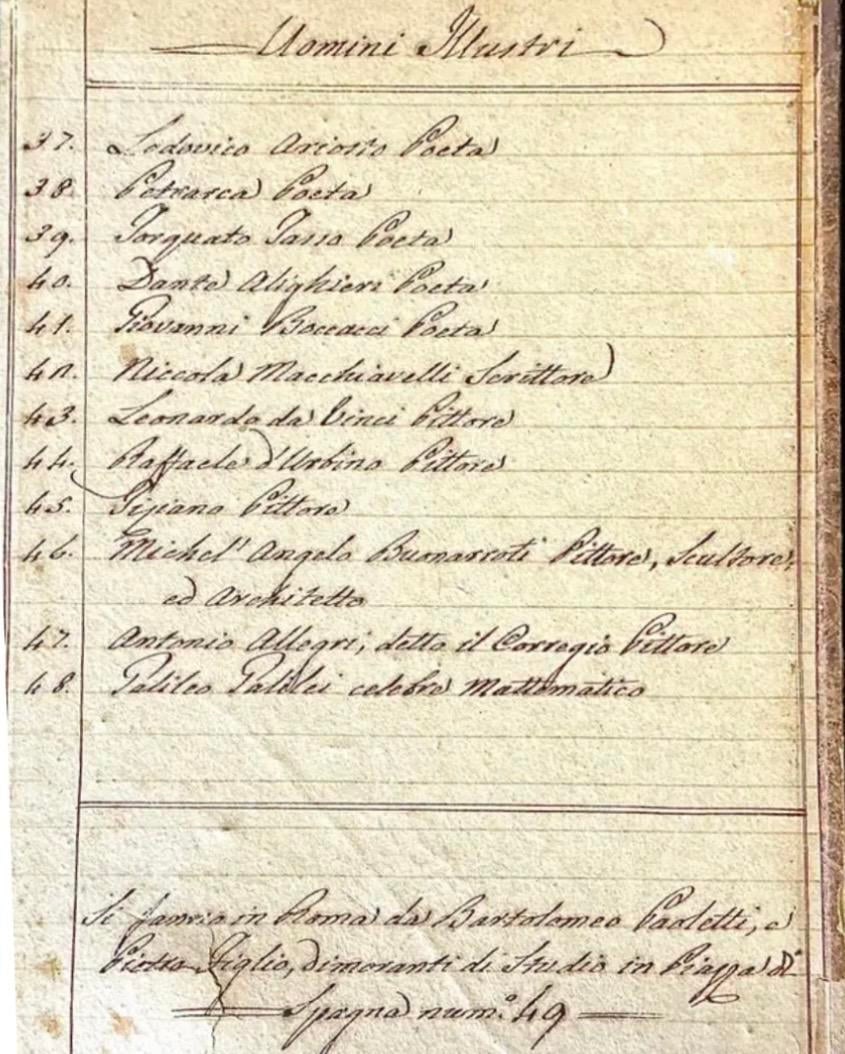 Uomini Illustri
37. Lodovico Ariosto Poeta
38. Petrarca Poeta
39. Torquato Tasso Poeta
40. Dante Alighieri Poeta
41. Giovanni Boccacci Poeta
42. Niccola Macchiavelli Scrittore
43. Leonardo da Vinci Pittore
44. Raffaele d'Urbino Pittore
45. Tiziano Pittore
46. Michel' Angelo Buonarroti Pittore, Scultore,
ed Architetto
47. Antonio Allegri, detto il Corregio Pittore
48. Galileo Galilei celebre Mattematico
Si fanno in Roma da Bartolomeo Paoletti, e
Pietro Figlio, dimoranti di Studio in Piazza di
Spagna num.º 49